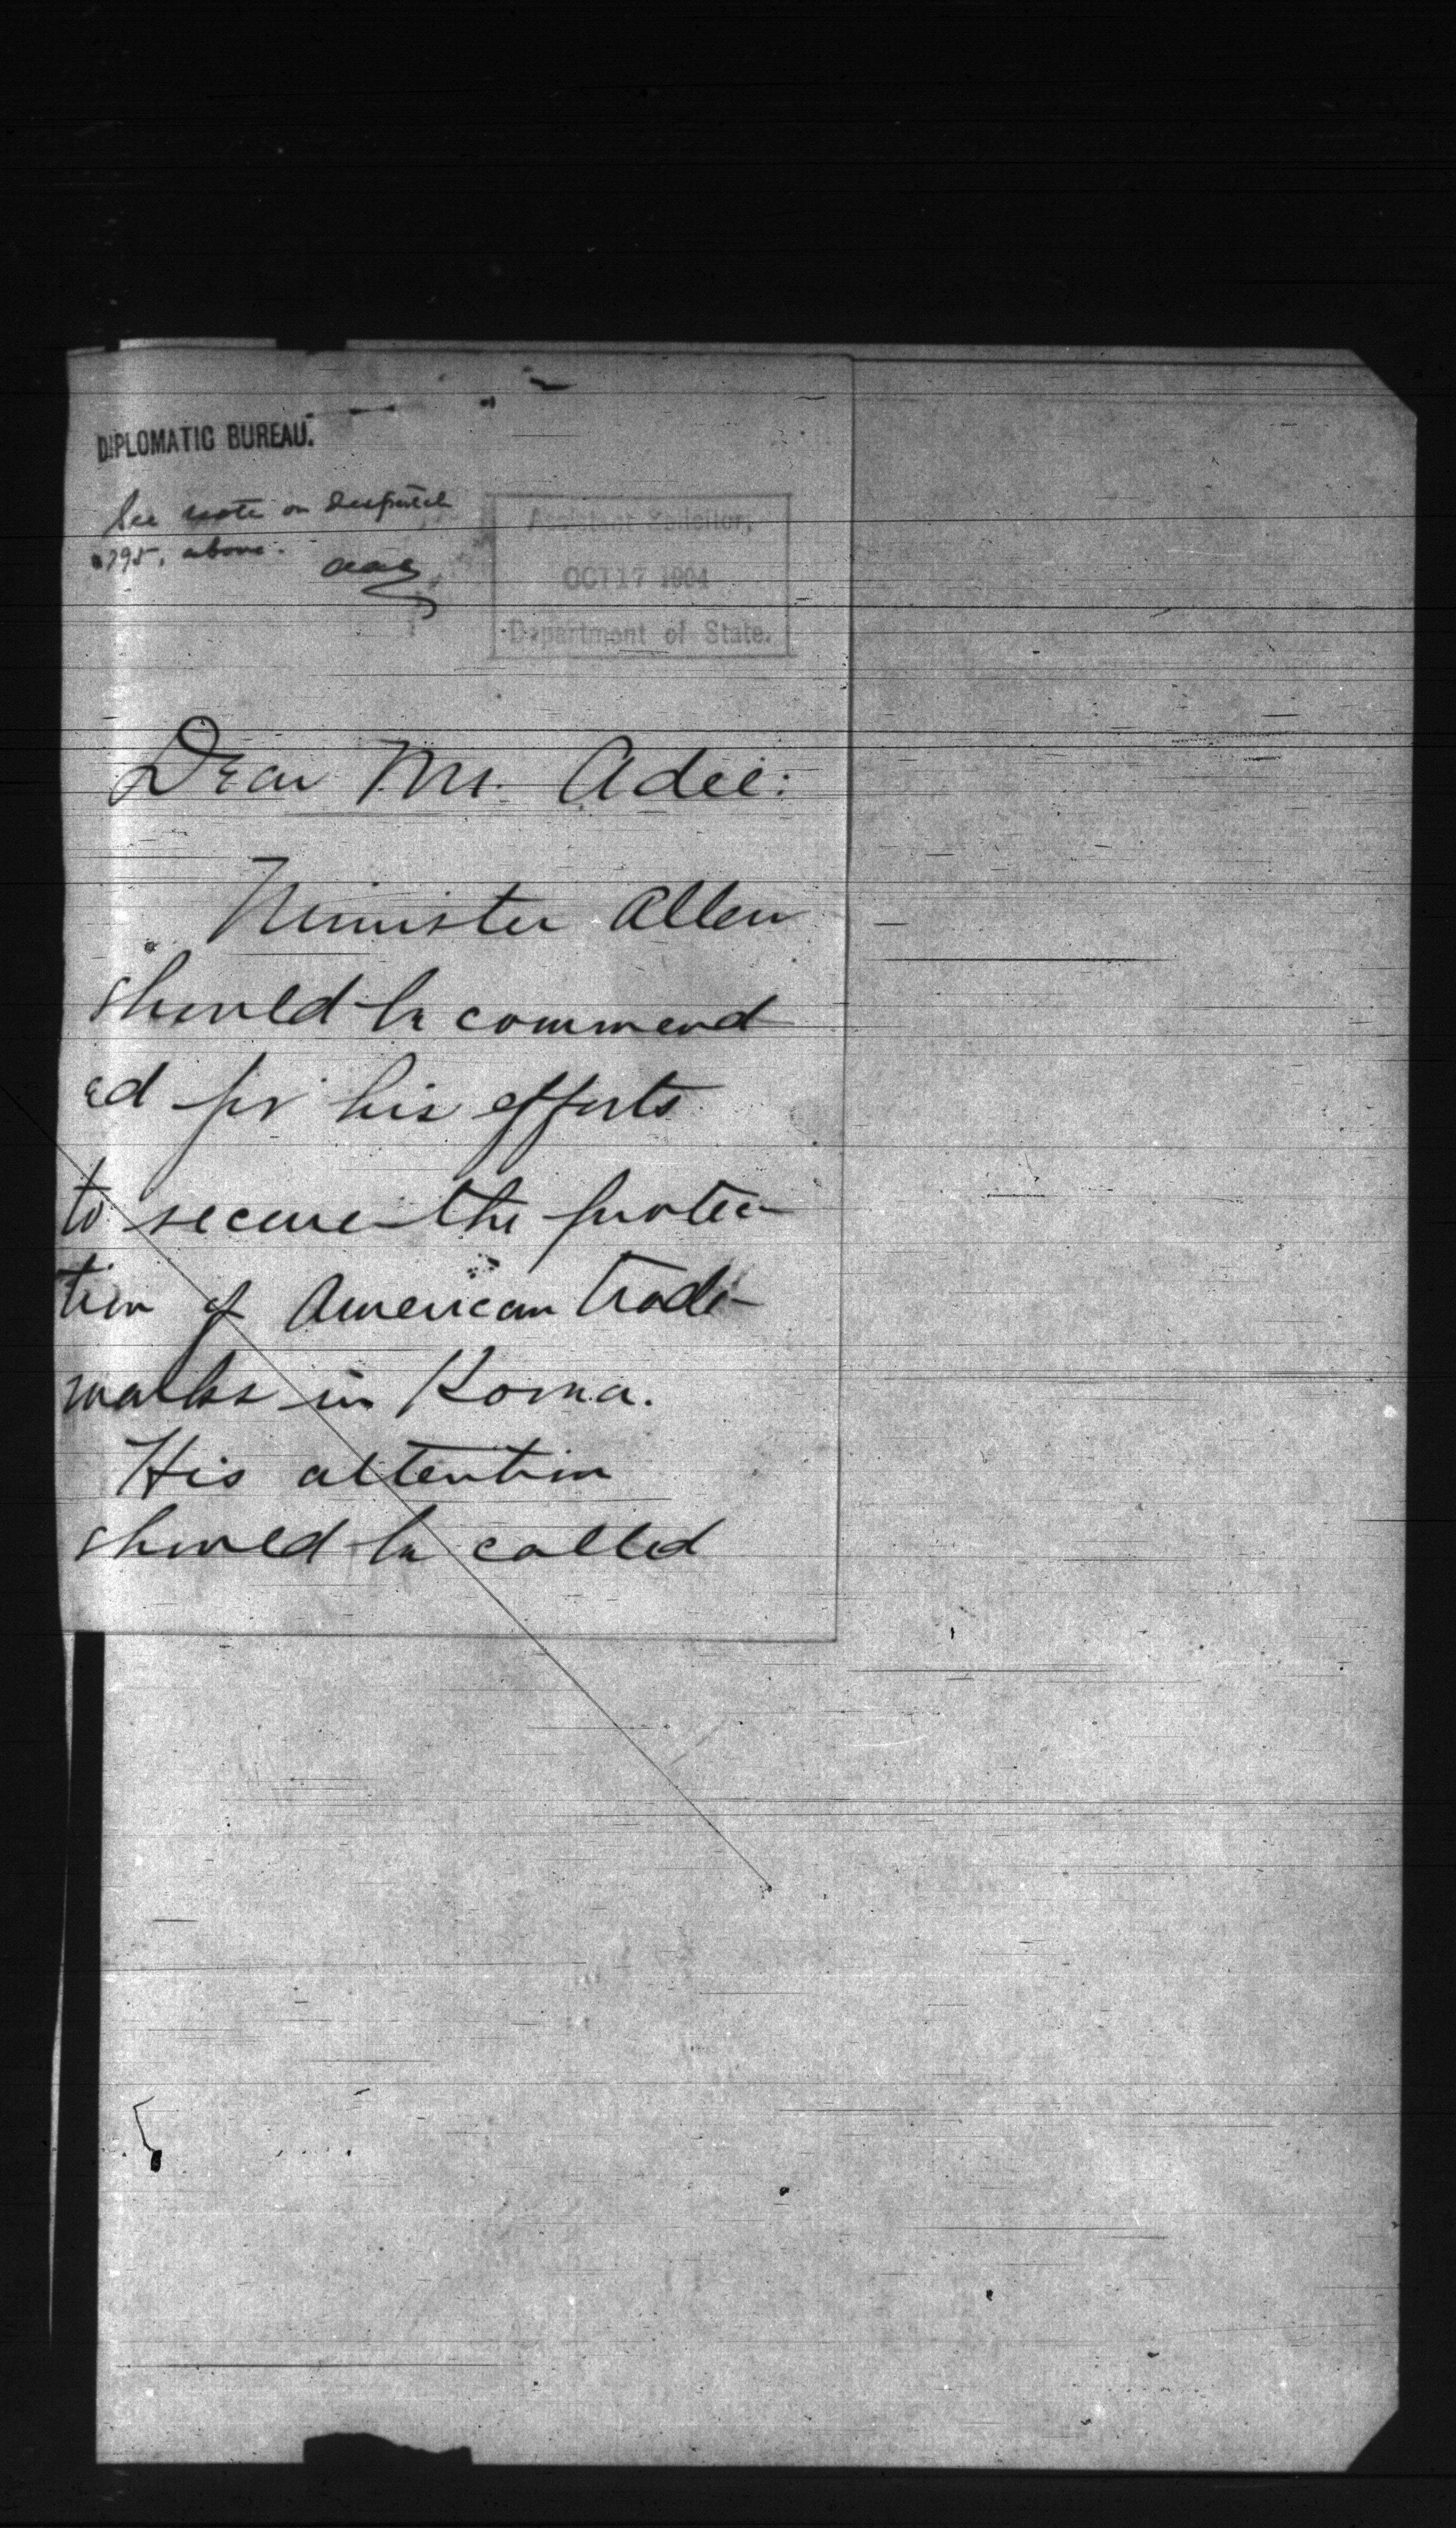 DIPLOMATIC BUREAU.
See note on despatch
795, above.
aaa
Assistant Solicitor,
OCT 17 1904
Department of State.
Dear Mr. Adee:
Minister Allen
should be commend
ed for his efforts
to secure the protec-
tion of American trade-
marks in Korea.
His attention
should be called